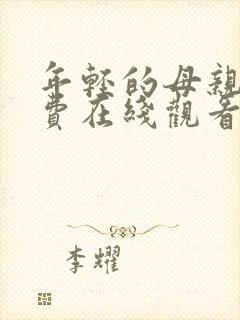 年轻的母親
費在綫觀看
李耀